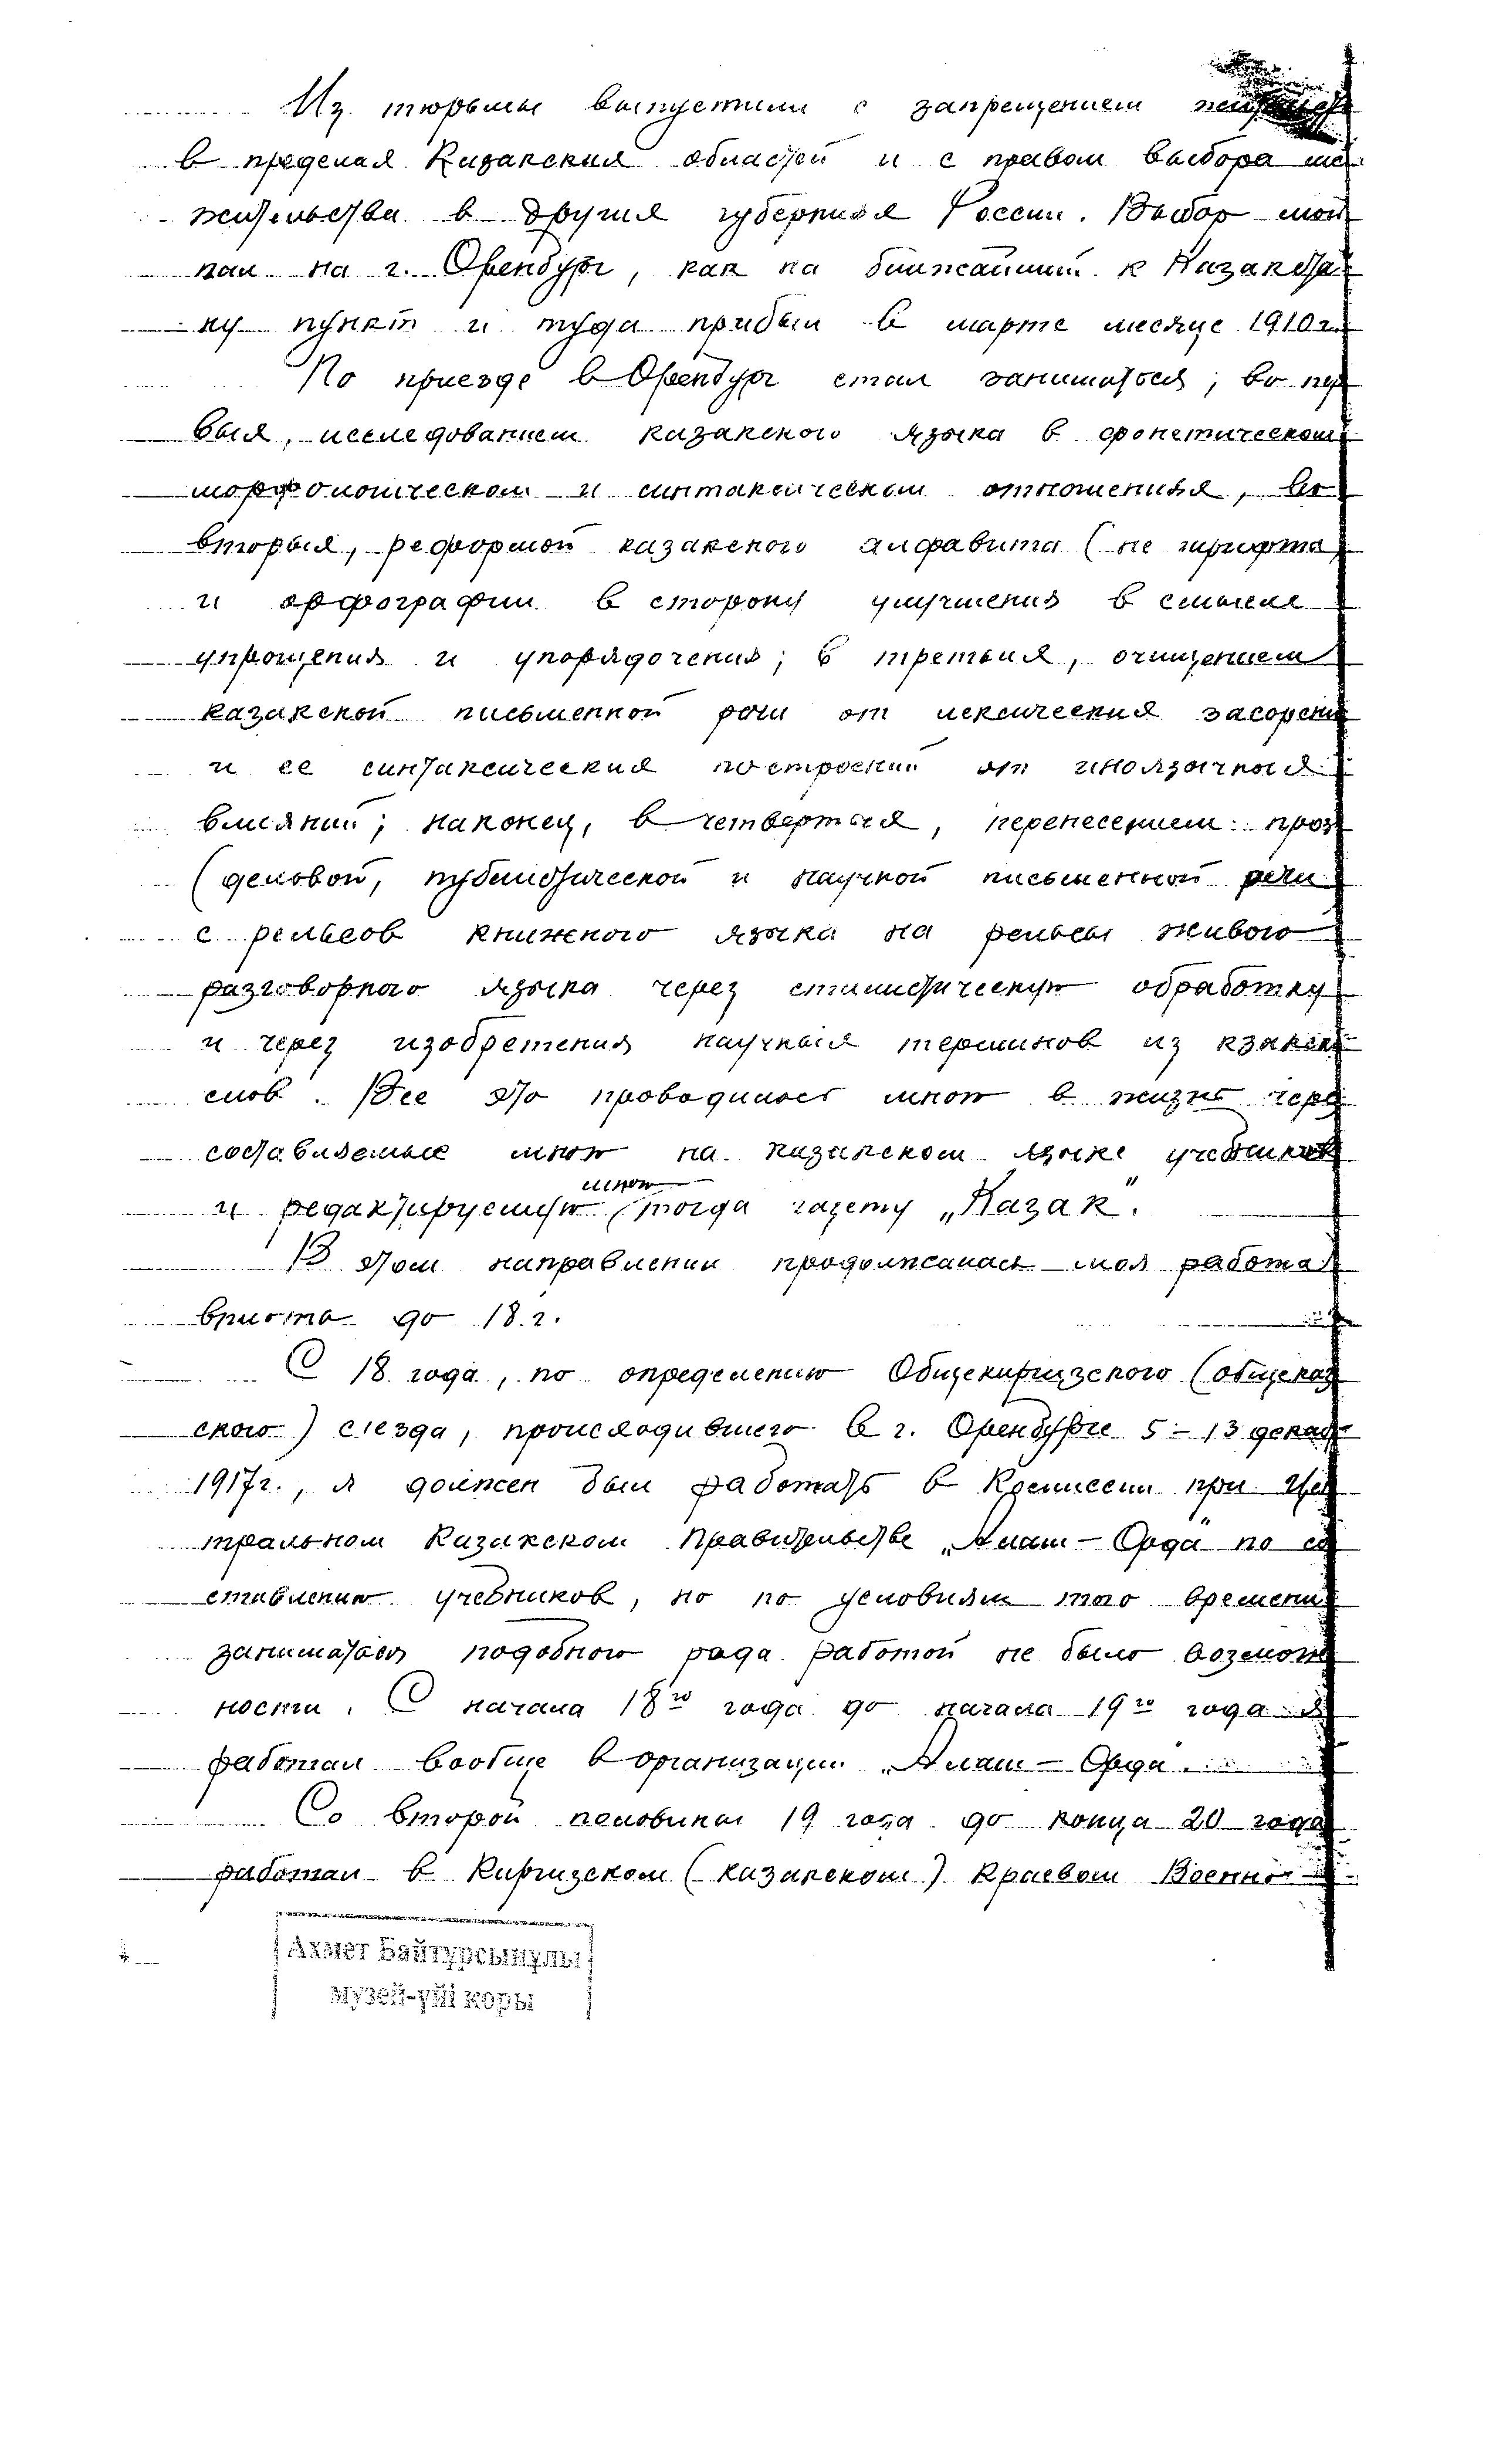 Из тюрьмы выпустили с запрещением
в пределах Казакских областей и с правом выбора ме
жительства в других губерниях России. Выбор мой
пал на г. Оренбург, как на ближайший к Казакста
ну пункт и туда прибыл в марте месяце 1910 г.
По приезде в Оренбург стал заниматься; во пер
вых, исследованием казакского языка в фонетическом
морфологическом и синтаксическом отношениях, во
вторых, реформой казакского алфавита (не шрифта)
и орфографии в сторону улучшения в смысле
упрощения и упорядочения; в третьих, очищением
казакской письменной речи от лексических засорени
и ее синтаксических построений от иноязычных
влияний; наконец, в четвертых, перенесением проз
(деловой, публистической и научной письменной речи
с рельсов книжного языка на рельсы живого
разговорного языка через стилистическую обработку
и через изобретения научных терминов из кзакск
слов. Все это проводилось мною в жизнь чере
составляемые мною на казакском языке учебники
мною
и редактируемую тогда газету „Казак".
В этом направлении продолжалась моя работа
вплоть до 18 г.
С 18 года, по определению Общекиргизского (общеказ
ского) съезда, происходившего в г. Оренбурге 5-13 декаб
1917 г., я должен был работать в Комиссии при Цен
тральном Казакском Правительстве „Алаш-Орда" по со
ставлению учебников, но по условиям того времени
заниматься подобного рода работой не было возмож
ности. С начала 18го года до начала 19го года я
работал вообще в организации „Алаш-Орда".
Со второй половины 19 года до конца 20 года
работал в Киргизском (казакском) Краевом Военно-
Ахмет Байтұрсынұлы
музей-үйі қоры